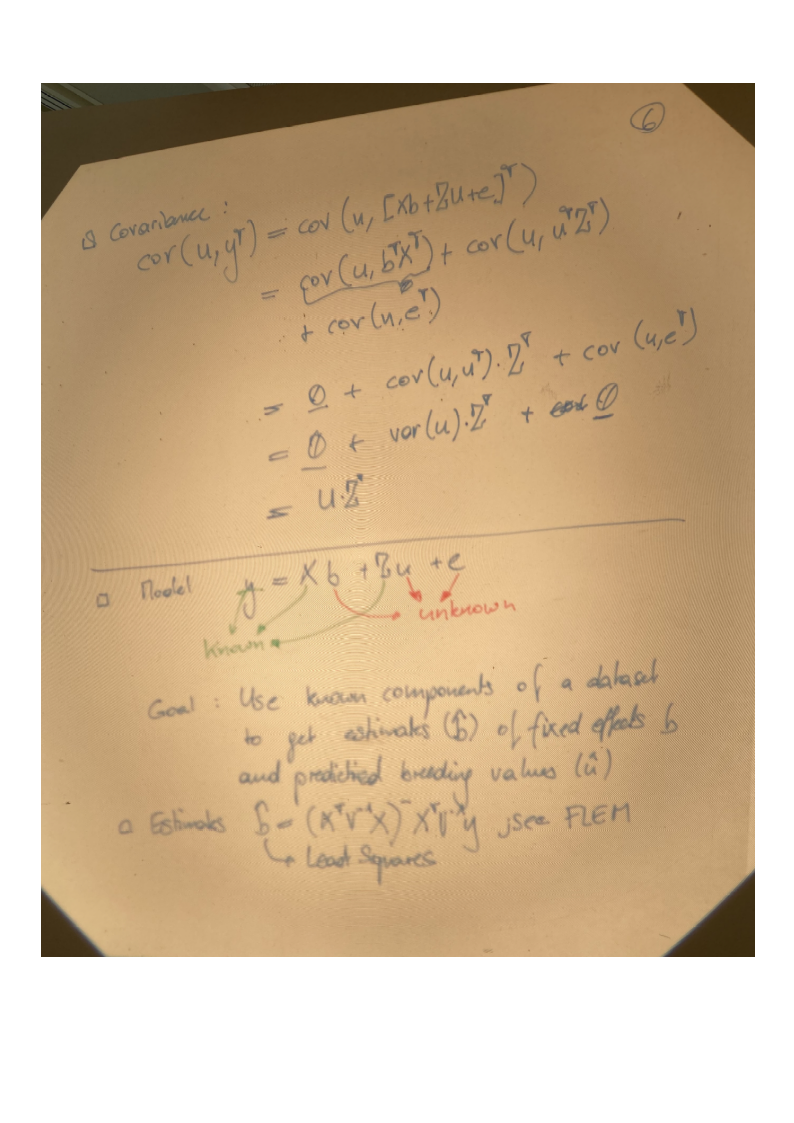 6
Covariance :
cov(u, yᵀ) = cov(u, [Xb+Zu+e]ᵀ)
= cov(u, bᵀXᵀ) + cov(u, uᵀZᵀ)
+ cov(u, eᵀ)
= 0 + cov(u, uᵀ)·Zᵀ + cov(u, eᵀ)
= 0 + var(u)·Zᵀ + 0
= U·Zᵀ
Model y = Xb + Zu + e
unknown
known
Goal : Use known components of a dataset
to get estimates (b̂) of fixed effects b
and predicted breeding values (û)
Estimates b̂ = (XᵀV⁻¹X)⁻XᵀV⁻¹y ; see FLEM
Least Squares